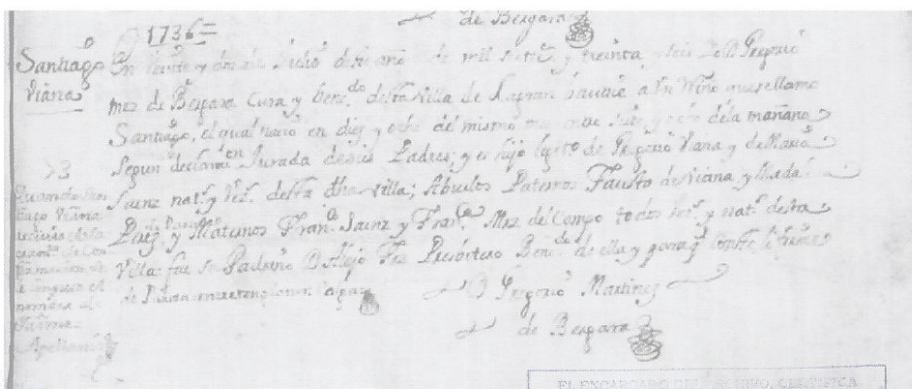 de Bergara
1736=
Santiago
Viana
En veinte y dos de Julio deste año de mil setec.s y treinta y seis Yo D. Gregorio
Mrez de Bergara Cura y benef.do desta villa de Lapran bauticé a Un Niño que se llamo
Santiago, el qual nació en diez y ocho del mismo mes entre siete y ocho dela mañana
segun declaraz.on Jurada de sus Padres; y es hijo legmo de Gregorio Viana y de Maria
Saenz nat.s y Vez.s desta dha villa; Abuelos Paternos Fausto de Viana y Magd.a
Perez, y Maternos Fran.co Saenz y Fran.ca Mrez del Campo todos vez.s y nat.s desta
Villa: fue su Padrino D. Alejo Frz Presbitero Benef.do de ella y para q conste lo firmé
D Gregorio Martinez
de Bergara
quando San
tiago Viana
nombre de
Jaime=
Apellaniz
EL ENCARGADO DEL ARCHIVO, CERTIFICA